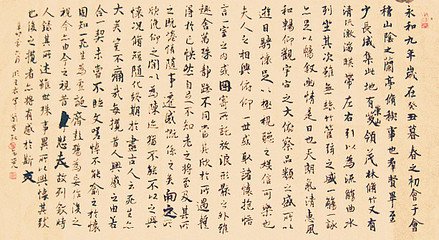 永和九年歲在癸丑暮春之初會于會
稽山陰之蘭亭脩稧事也群賢畢至
少長咸集此地有崇山峻領茂林脩竹又有
清流激湍暎帶左右引以為流觴曲水
列坐其次雖無絲竹管弦之盛一觴一詠
亦足以暢敘幽情是日也天朗氣清惠風
和暢仰觀宇宙之大俯察品類之盛所以
遊目騁懷足以極視聽之娛信可樂也
夫人之相與俯仰一世或取諸懷抱悟
言一室之內或因寄所託放浪形骸之外雖
趣舍萬殊靜躁不同當其欣於所遇暫
得於己快然自足不知老之將至及其所
之既惓情隨事遷感慨係之矣向之所
欣俛仰之間以為陳迹猶不能不以之興
懷況脩短隨化終期於盡古人云死生亦
大矣豈不痛哉每攬昔人興感之由若
合一契未嘗不臨文嗟悼不能喻之於懷
固知一死生為虛誕齊彭殤為妄作後之
視今亦由今之視昔悲夫故列敘時
人錄其所述雖世殊事異所以興懷其致
一也後之攬者亦將有感於斯文